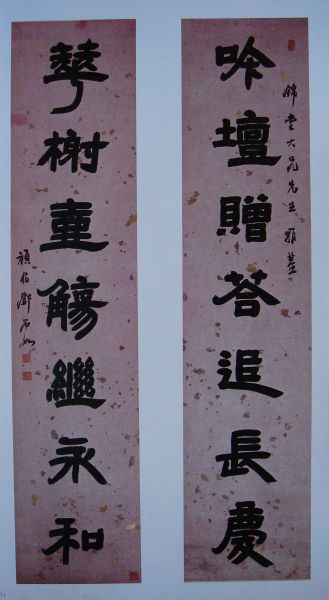 錦堂大兄先生雅鑒
吟壇贈荅追長慶
榭壺觴繼永和
頑伯鄧石如